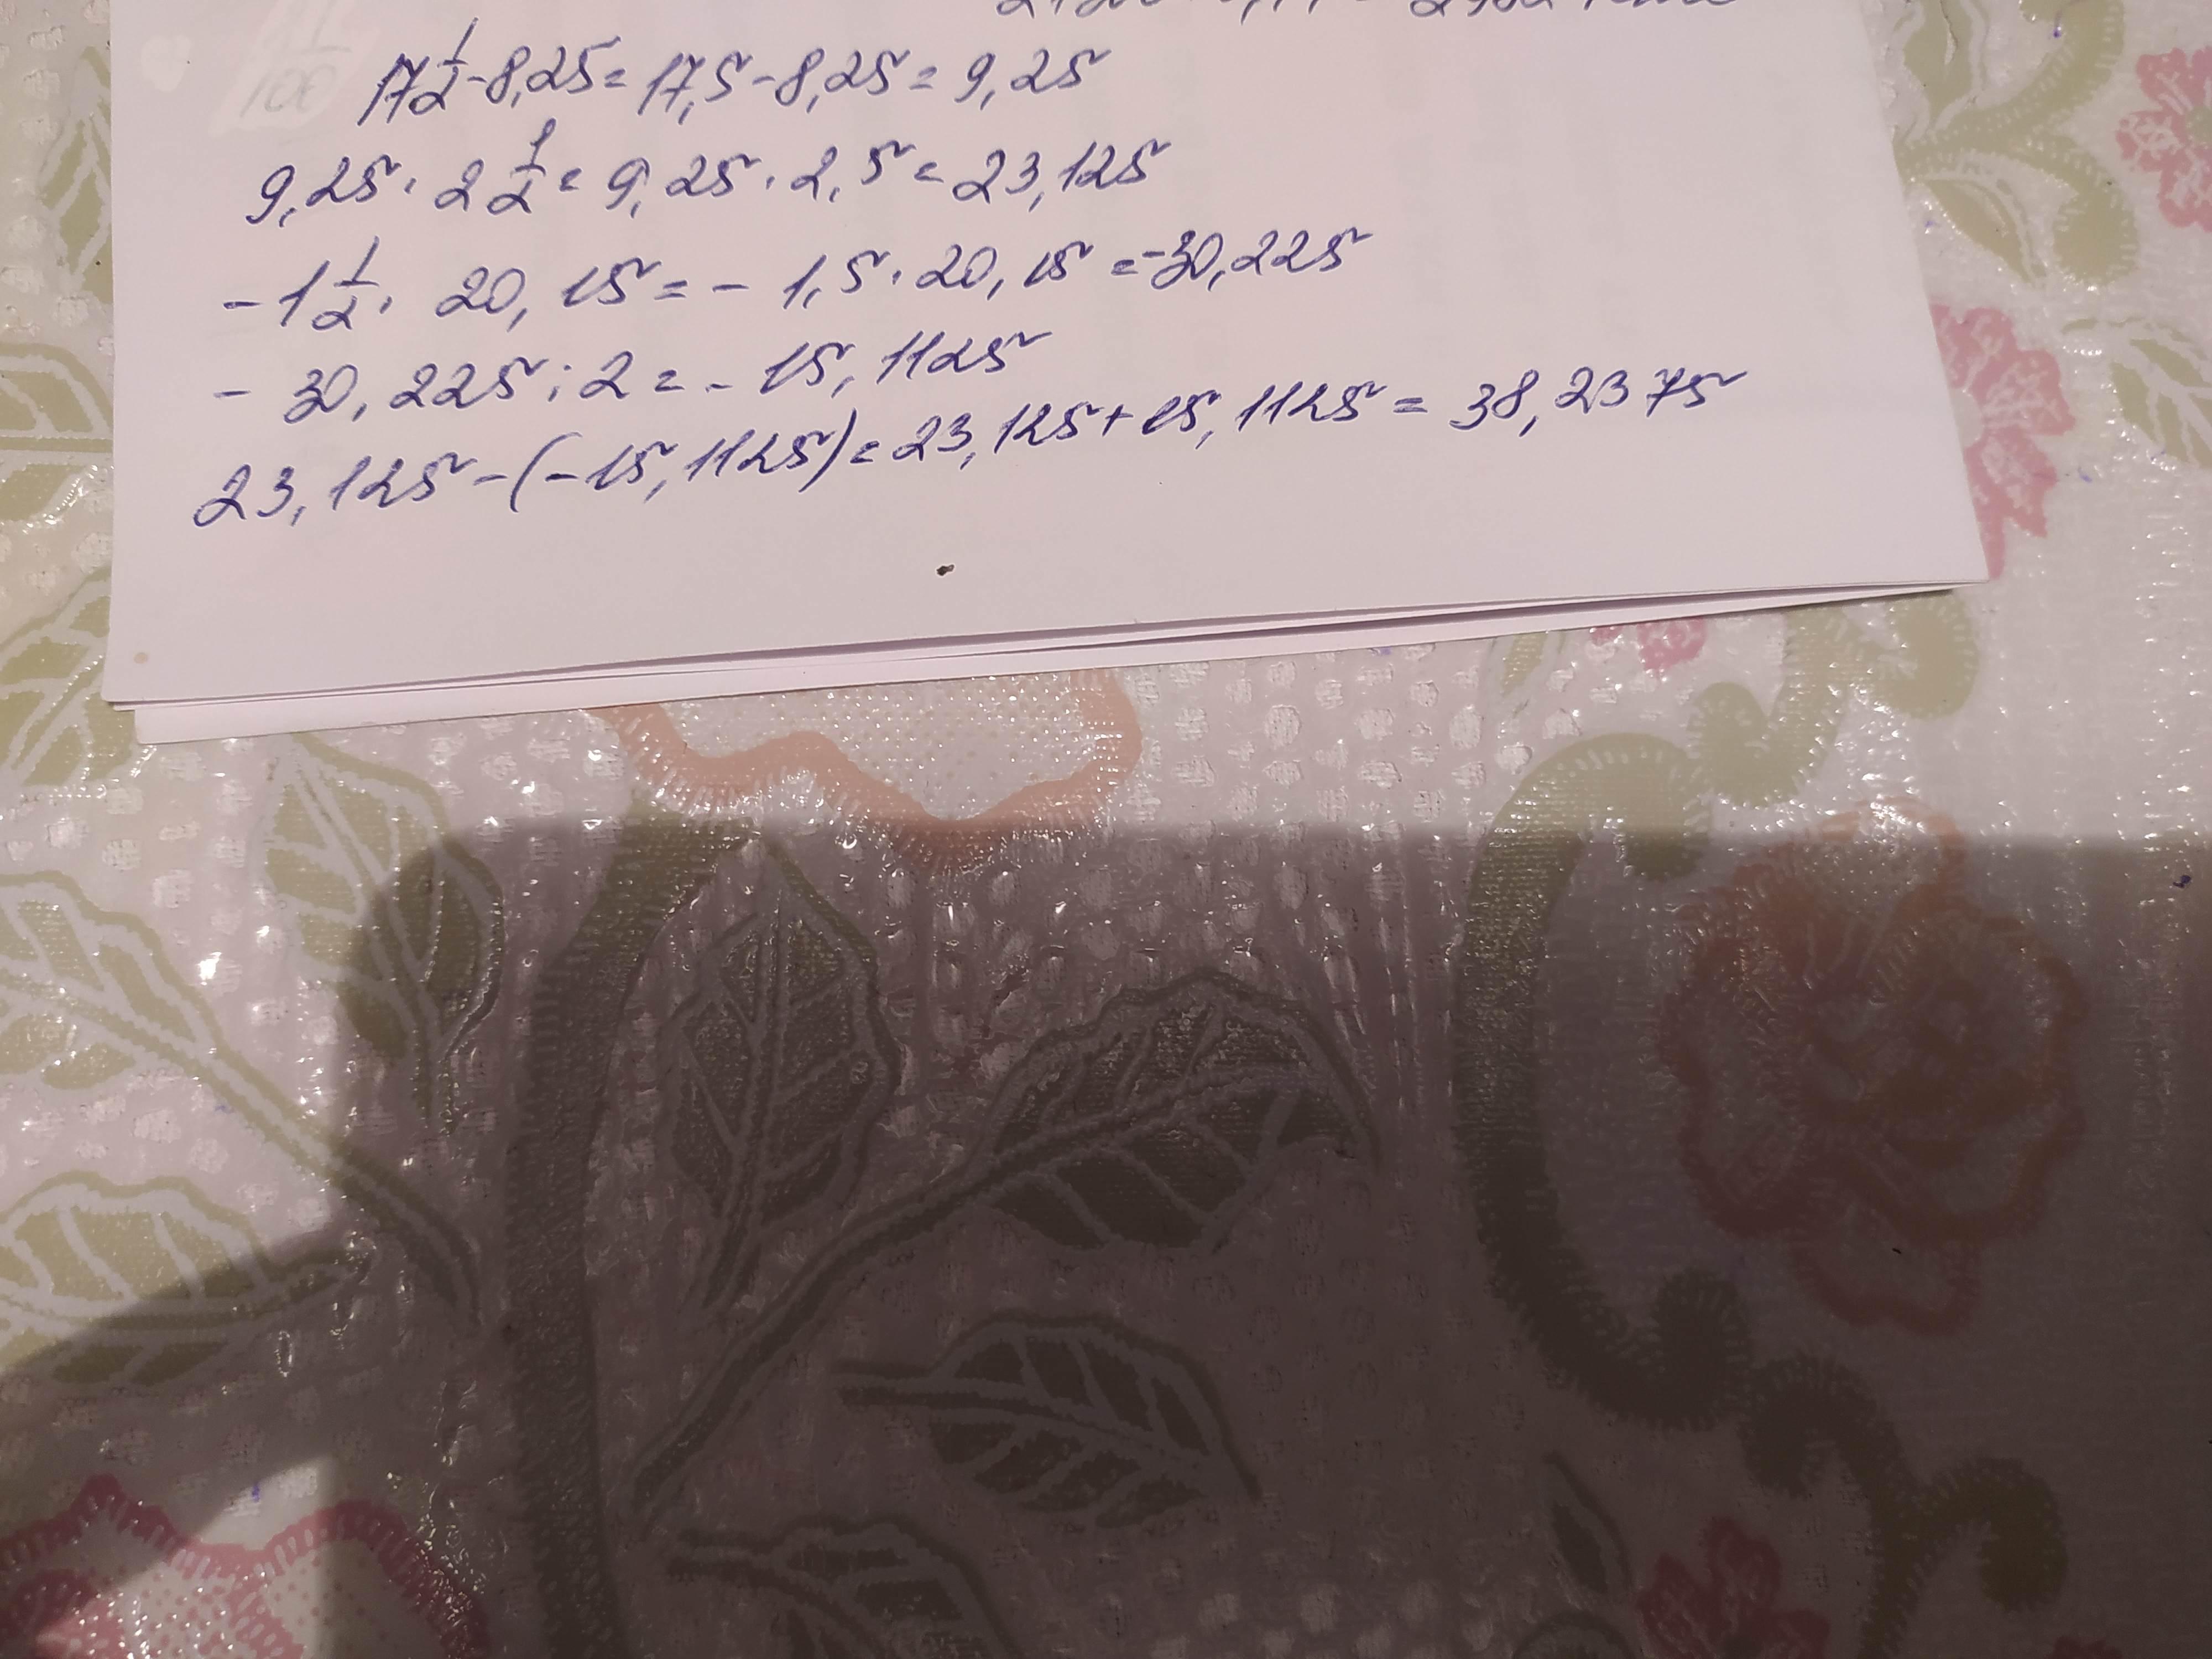 17 1/2 - 8,25 = 17,5 - 8,25 = 9,25
9,25 · 2 1/2 = 9,25 · 2,5 = 23,125
- 1 1/2 · 20,15 = - 1,5 · 20,15 = -30,225
- 30,225 : 2 = - 15,1125
23,125 - (-15,1125) = 23,125 + 15,1125 = 38,2375